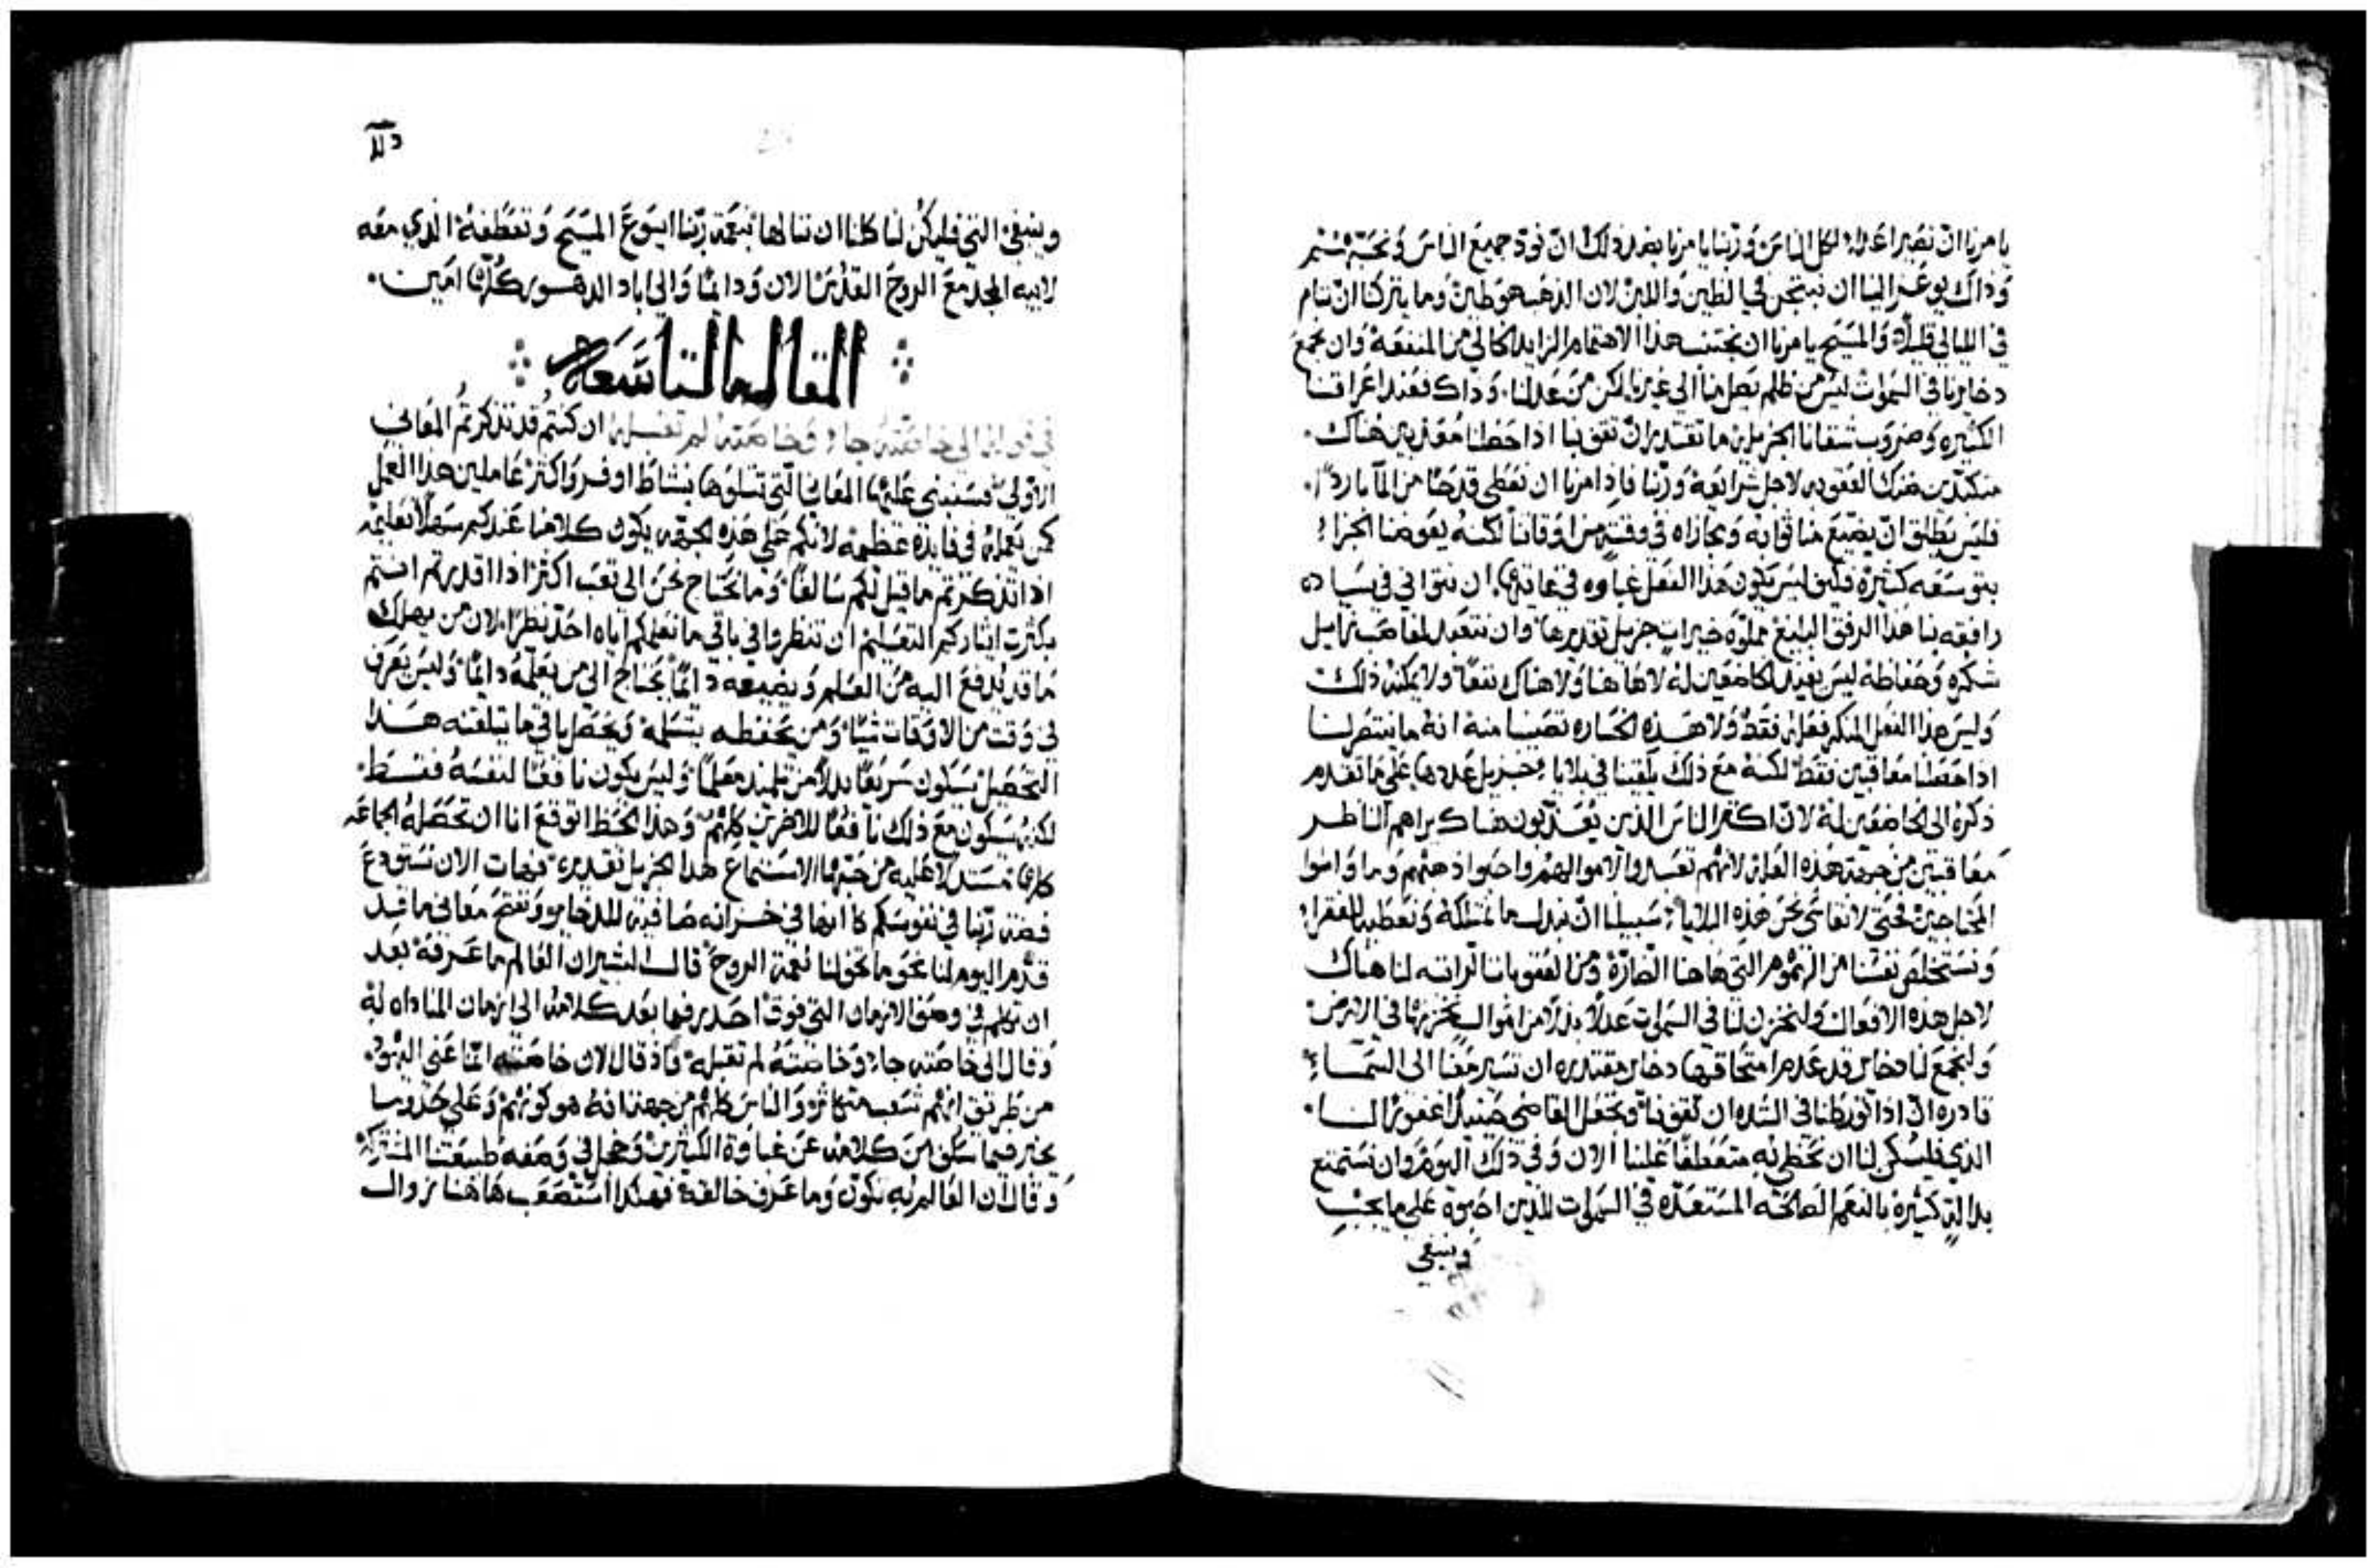 يامرنا ان نصير اعداء لكل الناس وربنا يامرنا بضد ذلك ان نود جميع الناس ونحبهم
وذاك يوعز الينا ان نبتحن في الطين واللبن لان الذهب هو طين وما يتركنا ان ننام
في الليالي قليلاً والمسيح يامرنا ان نجتنب هذا الاهتمام الزايد الخالي من المنفعه وان نجمع
دخايرنا في السموات ليس من ظلم يصل منا الى غيرنا لكن من عدلنا وذاك فعند اعراقنا
الكثيره وضروب شقانا الجزيله ما تقتدر ان تقف بنا اذا حصلنا معذبين هناك
متكبدين ضنك العقوبه لاجل شرايعه وربنا فاذا امرنا ان نعطي قدحًا من الما باردًا
فليس يطلق ان يضيع منا ثوابه ومجازاه في وقت من اوقاتنا لكنه يعوضنا الجزاء
بتوسعه كثيره فكيف ليس يكون هذا الفعل غباوه في غايتها ان نتوانى في سياده
رافقه بنا هذا الرفق البليغ مملوه خيرات جزيل تقديرها وان نتعبد لغاصب زايل
شكره وحفاظه ليس يفيد الخاضعين له لا هاهنا ولا هناك نفعًا ولا يمكنه ذلك
وليس هذا الفعل المنكر فعله فقط ولا هذه الخساره تصيبنا منه انه ما ينتصر لنا
اذا حصلنا معاقبين فقط لكنه مع ذلك يلقينا في بلايا جزيل عددها على ما تقدم
ذكره الى الخاضعين له لان اكثر الناس الذين يعذبون هناك يراهم الناظر
معاقبين من جهة هذه العله لانهم تعبدوا لاموالهم واحبوا ذهبهم وما واسوا
المحتاجين فحتى لا نقاسي نحن هذه البلايا سبيلنا ان نبدل ما نمتلكه ونعطيه للفقراء
ونستخلص نفسنا من الهموم التي هاهنا الضارة ومن العقوبات الراتبه لنا هناك
لاجل هذه الافعال ولنخزن لنا في السموات عدلاً بدلاً من اموال نخزنها في الارض
ولنجمع لنا دخاير قد عدم امتحاقها دخاير مقتدره ان تسير معنا الى السماء
قادره ان اذا تورطنا في الشده ان تقف بنا وتجعل القاضي حينيذ غفورًا لنا
الذي فليكن لنا ان نحظى به متعطفًا علينا الان وفي ذلك اليوم وان نستمتع
بدالةٍ كثيره بالنعم الصالحه المستعده في السموات للذين احبوه على ما يجب
وينبغي
وينبغي التي فليكن لنا كلنا ان ننالها بنعمة ربنا ايسوع المسيح وتعطفه الذي معه
لابيه المجد مع الروح القدس الان ودايمًا والى اباد الدهور كلها امين
المقاله التاسعه
في قوله الى خاصته جاء وخاصته لم تقبله ان كنتم قد تذكرتم المعاني
الاولى فسنبني عليها المعاني التي تتلوها بنشاط اوفر واكثر عاملين هذا العمل
كمن يعمله في فايده عظيمه لانكم على هذه الجهه يكون كلامنا عندكم سهلاً تعليمه
اذا تذكرتم ما قيل لكم سالفًا وما نحتاج نحن الى تعب اكثر اذا اقدرتم انتم
بكثرت ايثاركم التعليم ان تنظروا في باقي ما نعلمكم اياه احد نظرًا لان من يهلك
ما قد يدفع اليه من العلم ويضيعه دايمًا يحتاج الى من يعلمه دايمًا وليس يعرف
في وقت من الاوقات شيًا ومن يحفظه يتسلمه ويحصل باقي ما يتلقنه هذا
التحصيل سيكون سريعًا بدلاً من تلميذ معلمًا وليس يكون نافعًا لنفسه فقط
لكنه سيكون مع ذلك نافعًا للاخرين كلهم وهذا الحظ اتوقع انا ان تحصله الجماعه
كلها مستدلاً عليه من حبها الاستماع هذا الجزيل تقديره فهات الان نستودع
فضة ربنا في نفوسكم كانها في خزانه صاينه للدخاير ونفتح معاني ما قد
قدم اليوم لنا نحو ما تخولنا نعمة الروح قال البشير ان العالم ما عرفه بعد
ان تكلم في وصف الازمان التي فوق احدر فيما بعد كلامه الى ازمان المناداه به
وقال الى خاصته جاء وخاصته لم تقبله فاذ قال الان خاصته انما عنى اليهود
من طريق انهم شعب متكاثر والناس كلهم من جهة انه هو كونهم وعلى حذو ما
تحير فيما سلف من كلامه عن غباوة الكثيرين وخجل في وصفه طبيعتنا المشتركه
وقال ان العالم به تكون وما عرف خالقه فهكذا استصعب هاهنا زوال